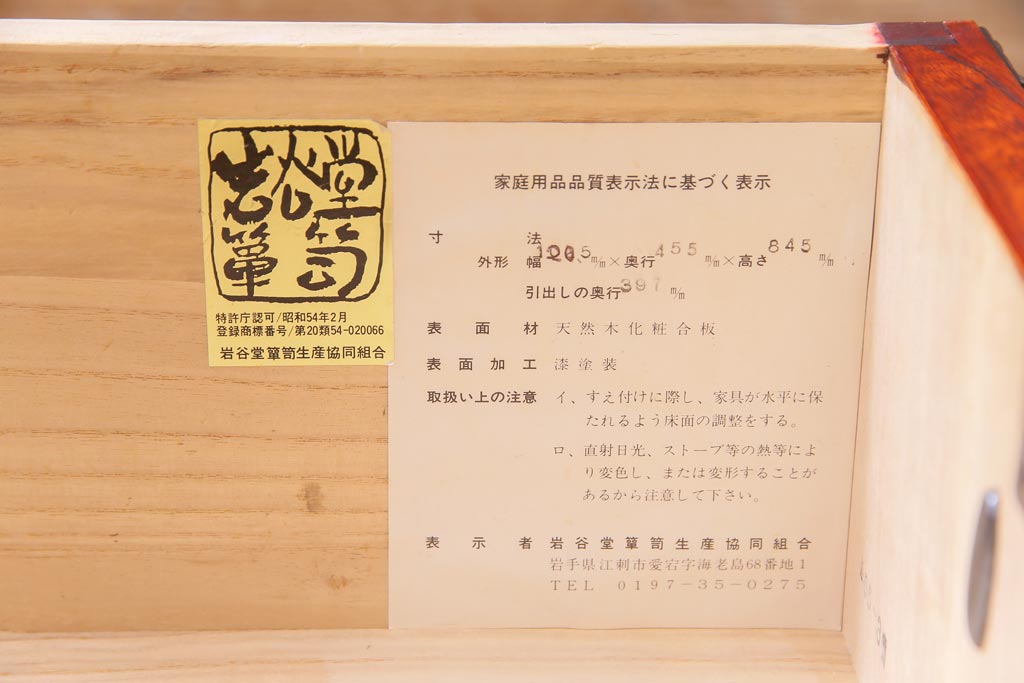 岩谷堂
箪笥
特許庁認可/昭和54年2月
登録商標番号/第20類54-020066
岩谷堂箪笥生産協同組合
家庭用品品質表示法に基づく表示
寸法
外形 幅 ㎜×奥行455㎜×高さ845㎜
引出しの奥行397㎜
表面材 天然木化粧合板
表面加工 漆塗装
取扱い上の注意 イ、すえ付けに際し、家具が水平に保
たれるよう床面の調整をする。
ロ、直射日光、ストーブ等の熱等によ
り変色し、または変形することが
あるから注意して下さい。
表示者 岩谷堂簞笥生産協同組合
岩手県江刺市愛宕字海老島68番地1
TEL 0197-35-0275